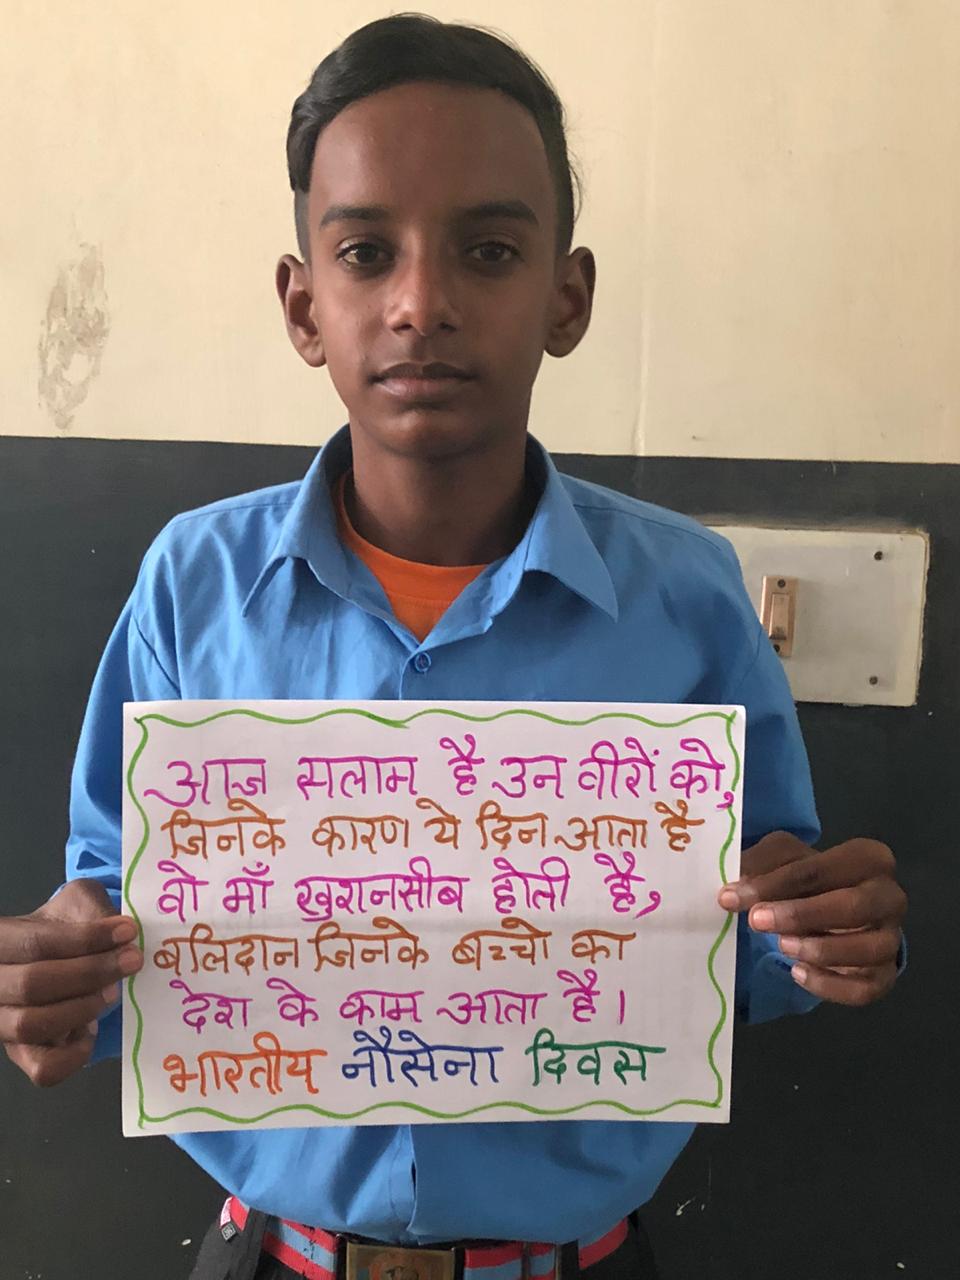 आज सलाम है उन वीरों को,
जिनके कारण ये दिन आता है
वो माँ खुशनसीब होती है,
बलिदान जिनके बच्चो का
देश के काम आता है।
भारतीय नौसेना दिवस